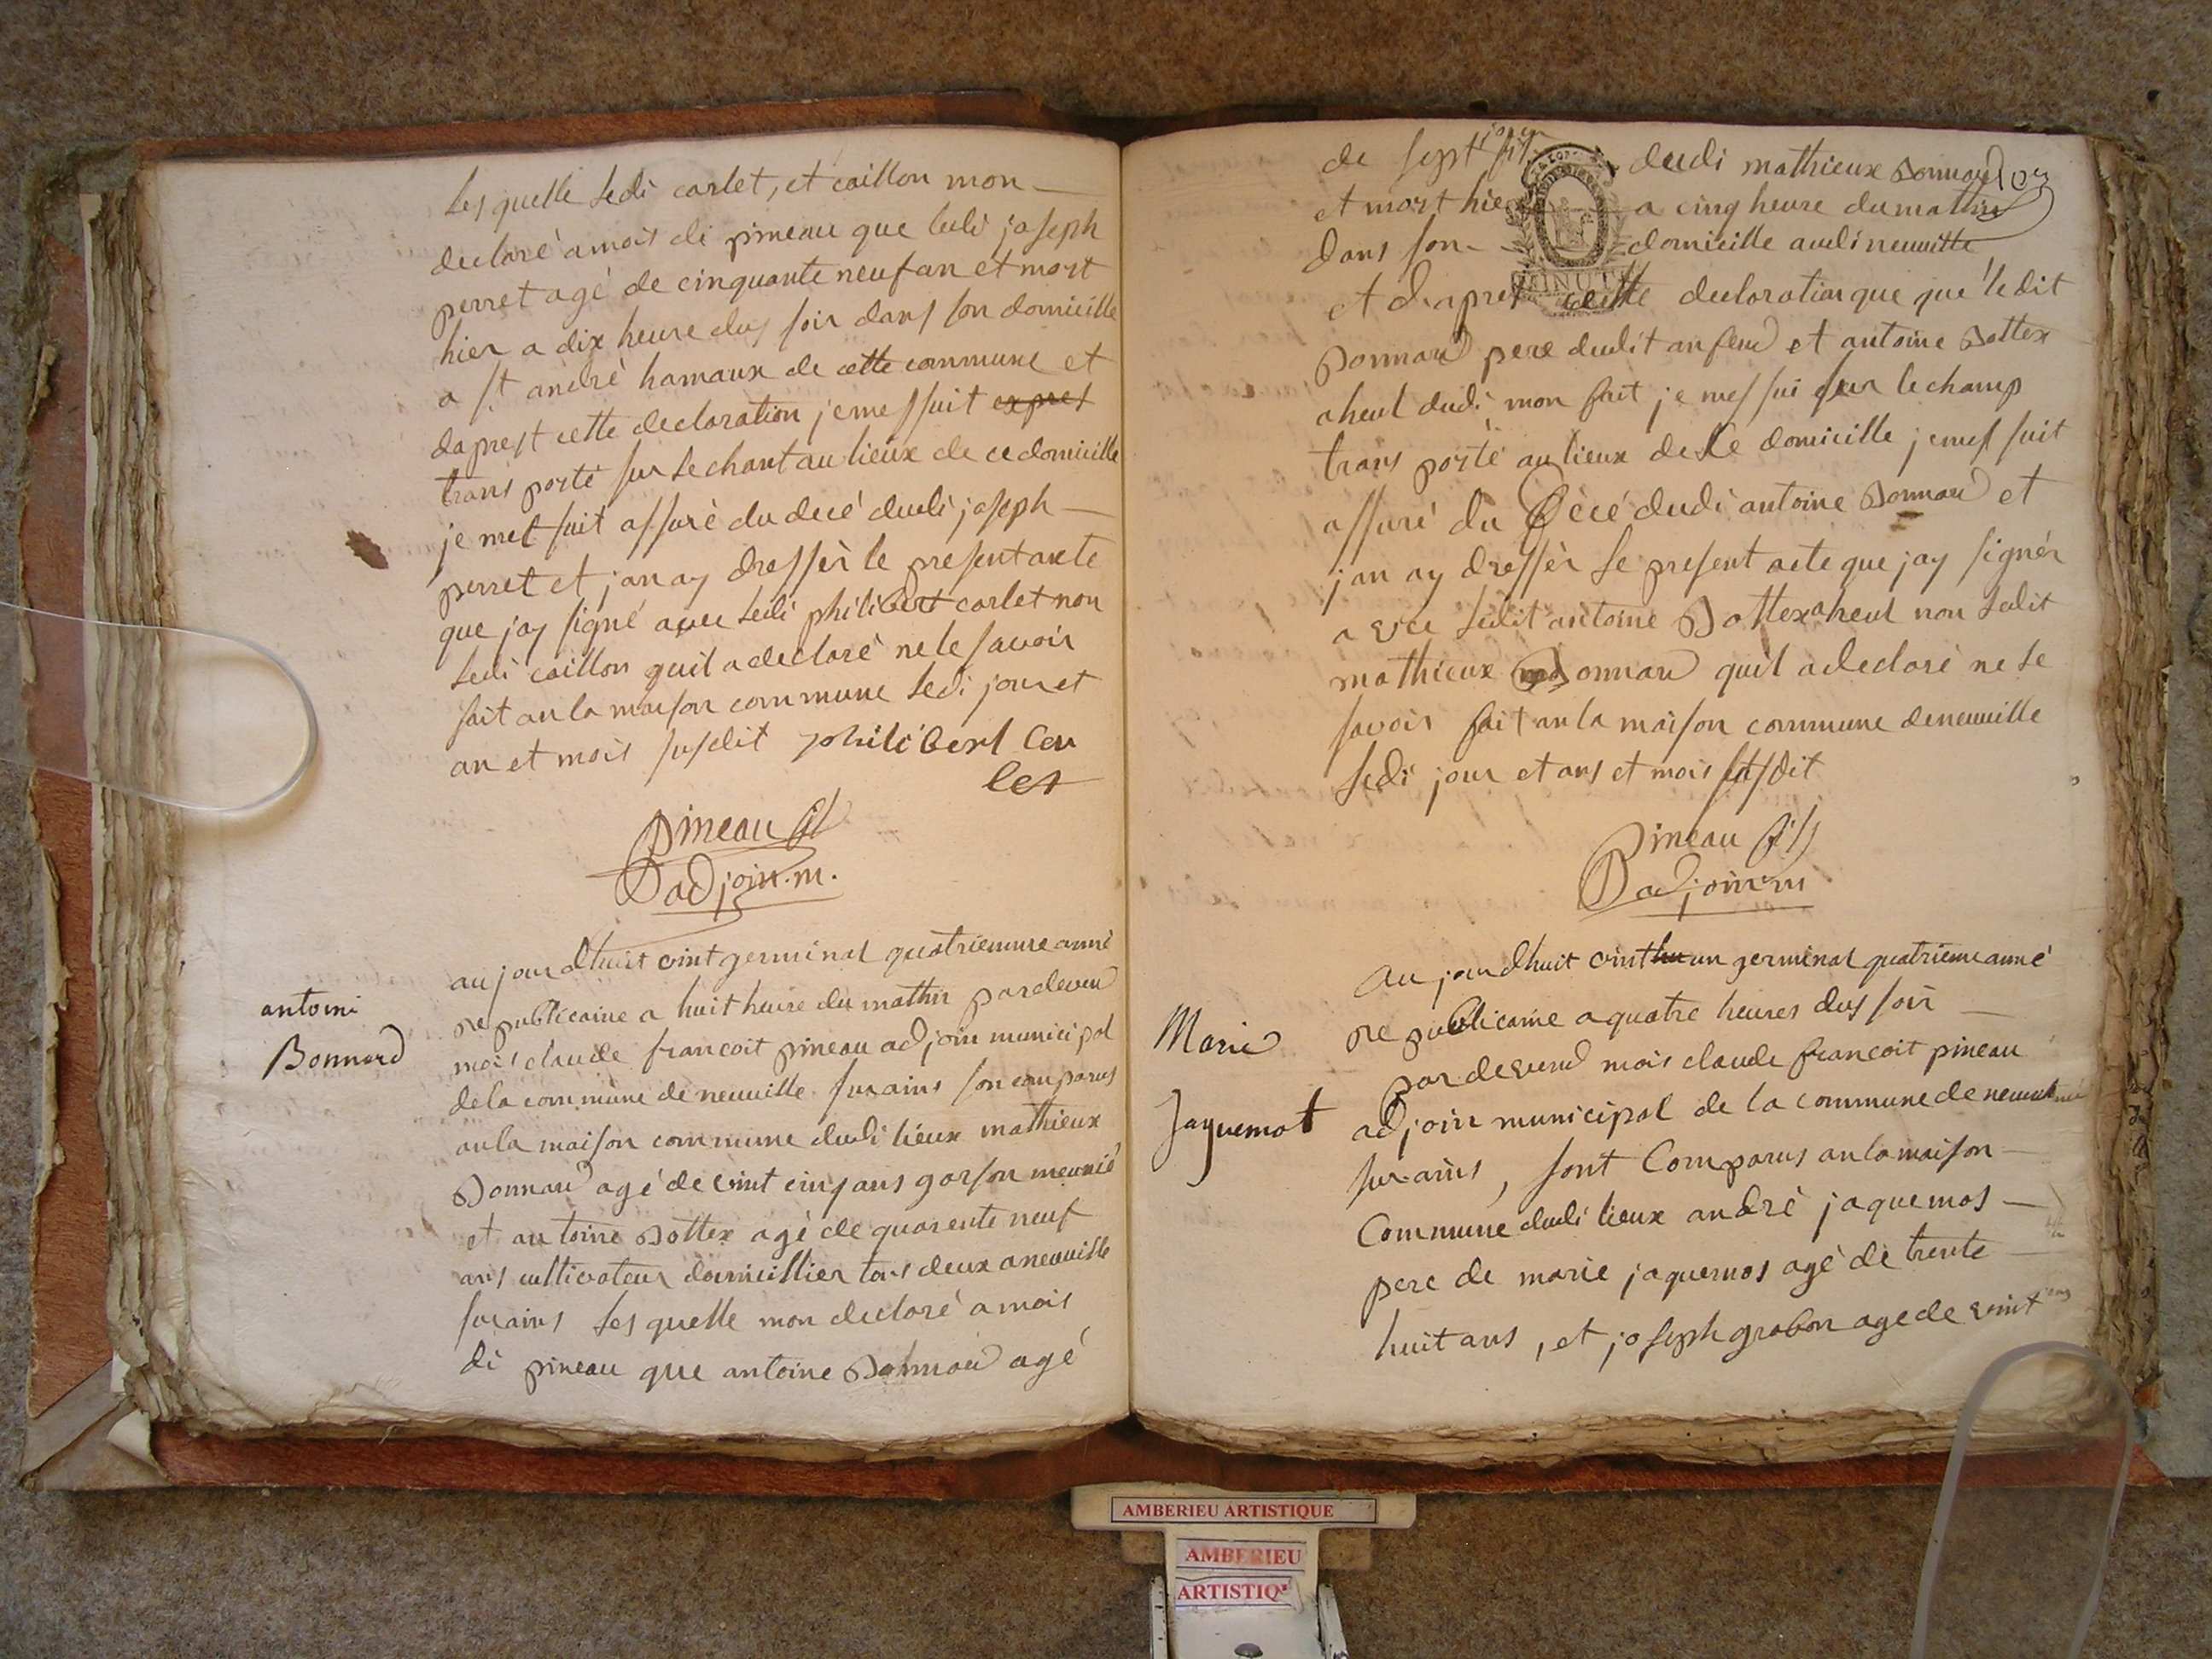 les quelle ledi carlet, et caillon mon
declaré a mois di pineau que ledi joseph
perret agé de cinquante neuf an et mort
hier a dix heure dus soir dans son domicille
a st andré hamaux de cette commune et
daprest cette declaration je me ssuit expres
trans porté sur le chant au lieux de ce domicille
je met suit assuré du decé dudi joseph
perret et jan ay dressèr le present axte
que jay signé avec ledi philibert carlet non
ledi caillon quil a declaré ne le savoir
fait an la maison commune ledi jour et
an et mois susdit philibert Car
let
pineau fils
adjoin.m.
antoine
Bonnard
aujourdhuit vint germinal quatriemme anné
republicaine a huit heure du mathin pardevend
mois claude francoit pineau adjoin municipal
de la commune de neuville sur ains son comparus
an la maison commune dudi lieux mathieux
Bonnard agé de vint cinq ans garson meunié
et antoine Bottex agé de quarente neuf
ans cultivateur domicillier tous deux a neuville
sur ains les quelle mon declaré a mois
di pineau que antoine Bonnard agé
de sept jour fils dudi mathieux Bonnard
et mort hier a cinq heure du matin
dans son domicille audi neuville
MINUTE
et daprest cette declaration que que le dit
Bonnard pere dudit anfend et antoine Bottex
aheul dudi mon fait je mes sui sur le champ
trans porté au lieux de ce domicille je mes suit
assuré du Décé dudi antoine Bonnard et
jan ay dressèr le present acte que jay signér
avec ledit antoine Bottex aheul non ledit
mathieux Bonnard quil a declaré ne le
savoir fait an la maison commune de neuville
ledi jour et ans et mois susdit
Pineau fils
adjoin m
Marie
Jaquemot
Aujourdhuit vint hu un germinal quatrieme anné
republicaine a quatre heures dus soir
pardevend mois claude francoit pineau
adjoin municipal de la commune de neuville
sur ains, sont Comparus an la maison
Commune dudi lieux andrè jaquemos
pere de marie jaquemos agé de trente
huit ans, et joseph grabon age de vint
AMBERIEU ARTISTIQUE
AMBERIEU
ARTISTIQ